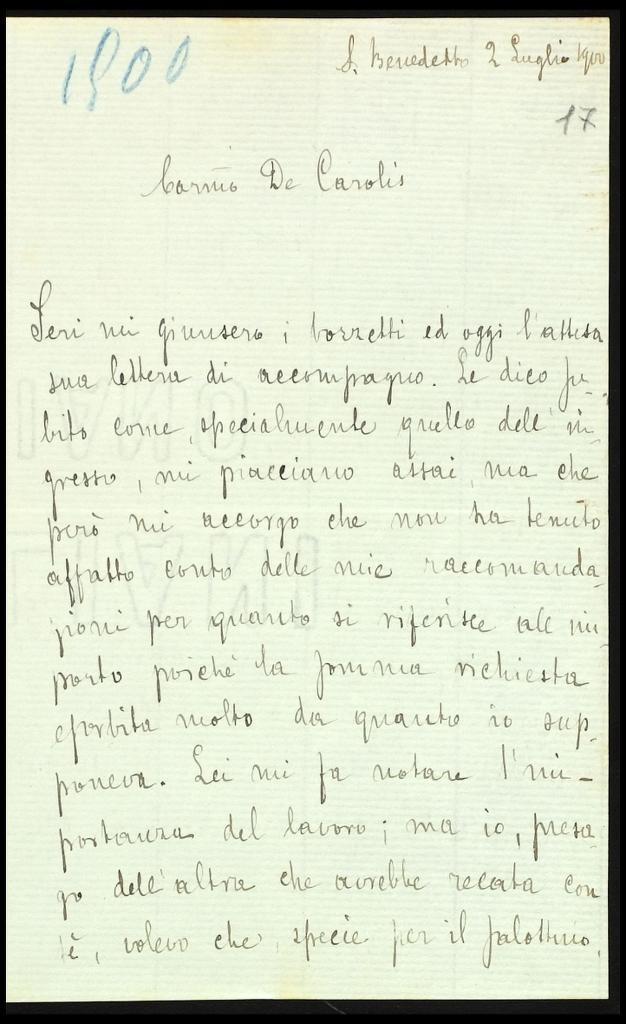 1900
S. Benedetto 2 Luglio 1900
17
Carmo De Carolis
Ieri mi giunsero i bozzetti ed oggi l'attesa
sua lettera di accompagno. Le dico su-
bito come, specialmente quello dell'in-
gresso, mi piacciano assai, ma che
però mi accorgo che non ha tenuto
affatto conto delle mie raccomanda-
zioni per quanto si riferisce all'im-
porto poichè la somma richiesta
esorbita molto da quanto io sup-
poneva. Lei mi fa notare l'im-
portanza del lavoro; ma io, presa-
go dell'altra che avrebbe recata con
sè, volevo che, specie per il salottino,